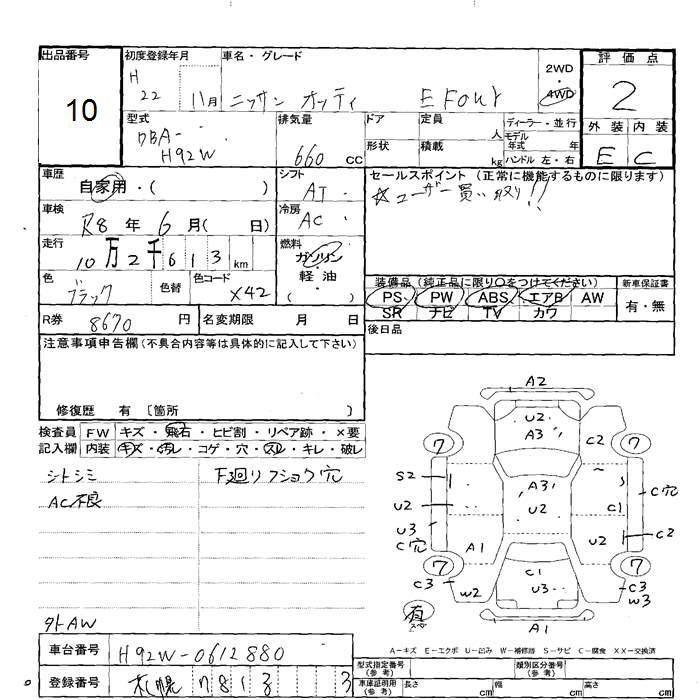 出品番号 初度登録年月 車名・グレード 2WD・4WD 評価点
10 H22 11月 ニッサン オッティ E FOUR 2
型式 排気量 ドア 定員 人 ディーラー・並行 外装 内装
DBA-H92W 660cc 形状 積載 kg モデル年式 年 ハンドル 左・右 E C
車歴 シフト セールスポイント (正常に機能するものに限ります)
自家用・( ) AT ☆ユーザー買い取り!!
車検 冷房
R8年6月( 日) AC
走行 燃料
10万2千613km ガソリン・軽油・( )
色 色替 色コード 装備品 (純正品に限り○をつけてください) 新車保証書
ブラック X42 PS PW ABS エアB AW 有・無
SR ナビ TV カワ
R券 8670円 名変期限 月 日 後日品
注意事項申告欄(不具合内容等は具体的に記入して下さい)
修復歴 有 〔箇所 〕
検査員 FW キズ・飛石・ヒビ割・リペア跡・×要
記入欄 内装 キズ・汚レ・コゲ・穴・スレ・キレ・破レ
シトシミ F廻リフショク穴
AC不良
外AW
A2
U2
A3
C2
7 7
S2
A3
U2
U2
C1
C穴
U3
C穴
A1
U2
C2
7 7
C3
W2
C1
U3
C3
W3
有
A1
A-キズ E-エクボ U-凹み W-補修跡 S-サビ C-腐食 XX-交換済
車台番号 H92W-0612880
型式指定番号(参考) 類別区分番号(参考)
登録番号 札幌 3
車庫証明用(参考) 長さ cm 幅 cm 高さ cm